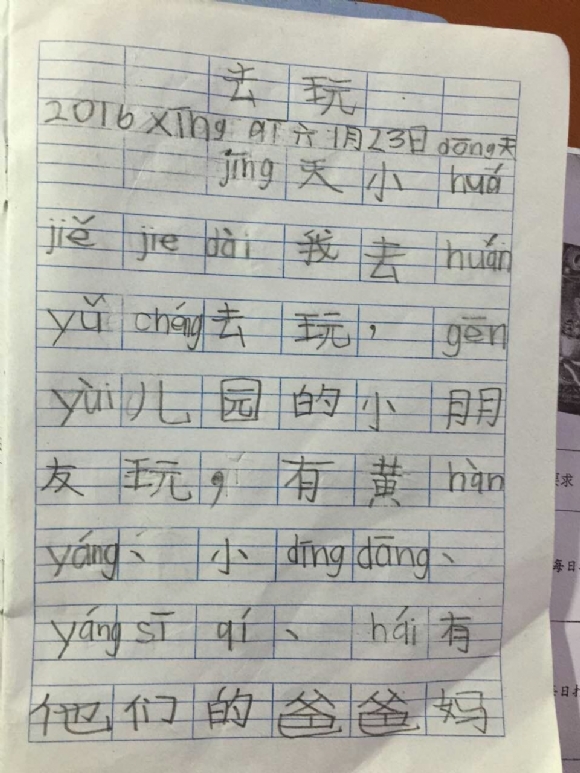 去玩
2016 xīng qī 六 1月23日 dōng天
jīng 天小 huá
jiě jie dài 我去 huán
yǔ cháng 去玩，gēn
yùi 儿园的小朋
友玩，有黄 hàn
yáng、小 dīng dāng、
yáng sī qí、hái 有
他们的爸爸妈
每日